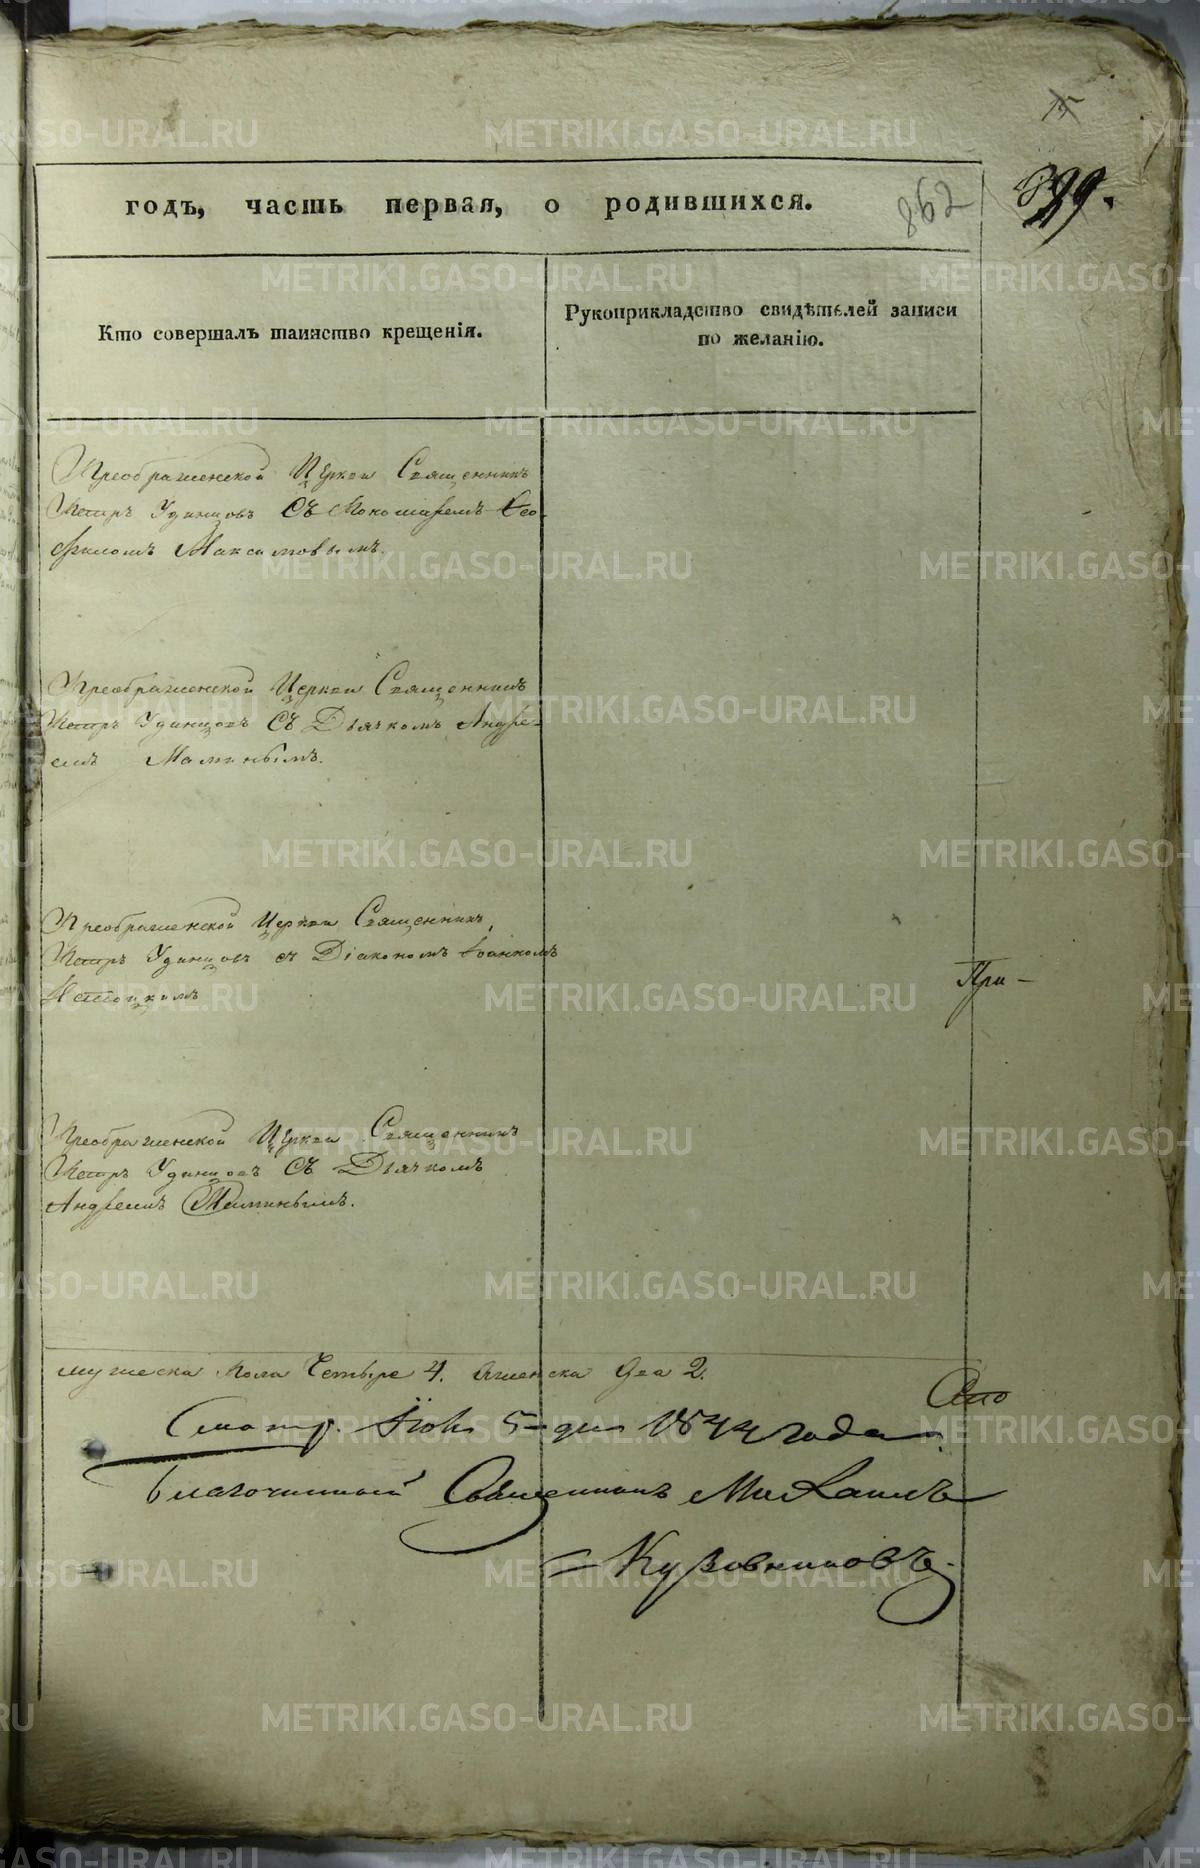 годъ, часть первая, о родившихся.
862
399.
Кто совершалъ таинство крещенія.
Рукоприкладство свидѣтелей записи
по желанію.
Преображенской Церкви Священникъ
Петръ Удинцовъ Съ Пономаремъ Ѳео-
филомъ Максимовымъ.
Преображенской Церкви Священникъ
Петръ Удинцовъ Съ Дьячкомъ Андре-
емъ Маминымъ.
Преображенской Церкви Священникъ
Петръ Удинцовъ съ Діакономъ Іоанномъ
При-
Преображенской Церкви Священникъ
Петръ Удинцовъ Съ Дьячкомъ
Андреемъ Маминымъ.
мужеска пола Четыре 4. Женска два 2.
Смотр. 5 дня 1844 года
Благочинный Священникъ Михаилъ
Кузовниковъ.
METRIKI.GASO-URAL.RU